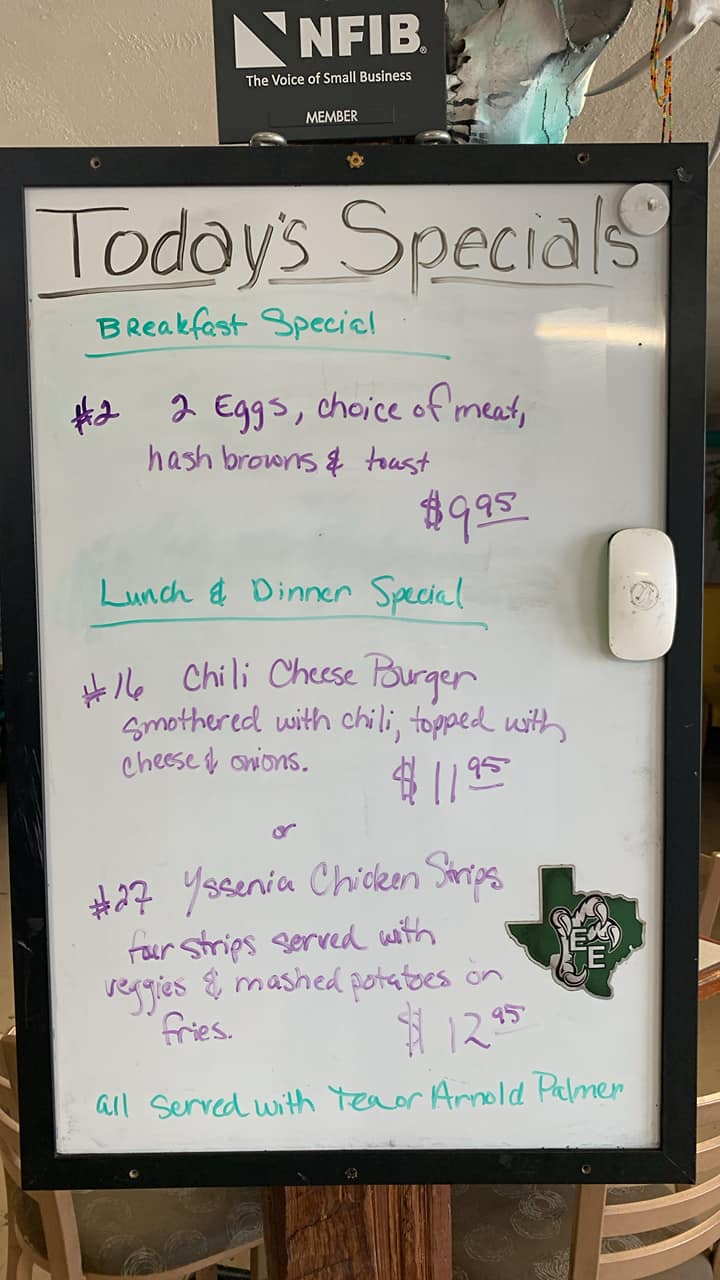 NFIB®
The Voice of Small Business
MEMBER
Today's Specials
Breakfast Special
#2 2 Eggs, choice of meat,
hash browns & toast
$9.95
Lunch & Dinner Special
#16 Chili Cheese Burger
smothered with chili, topped with
cheese & onions. $11.95
or
#27 Yssenia Chicken Strips
four strips served with
veggies & mashed potatoes or
fries. $12.95
EE
all served with Tea or Arnold Palmer